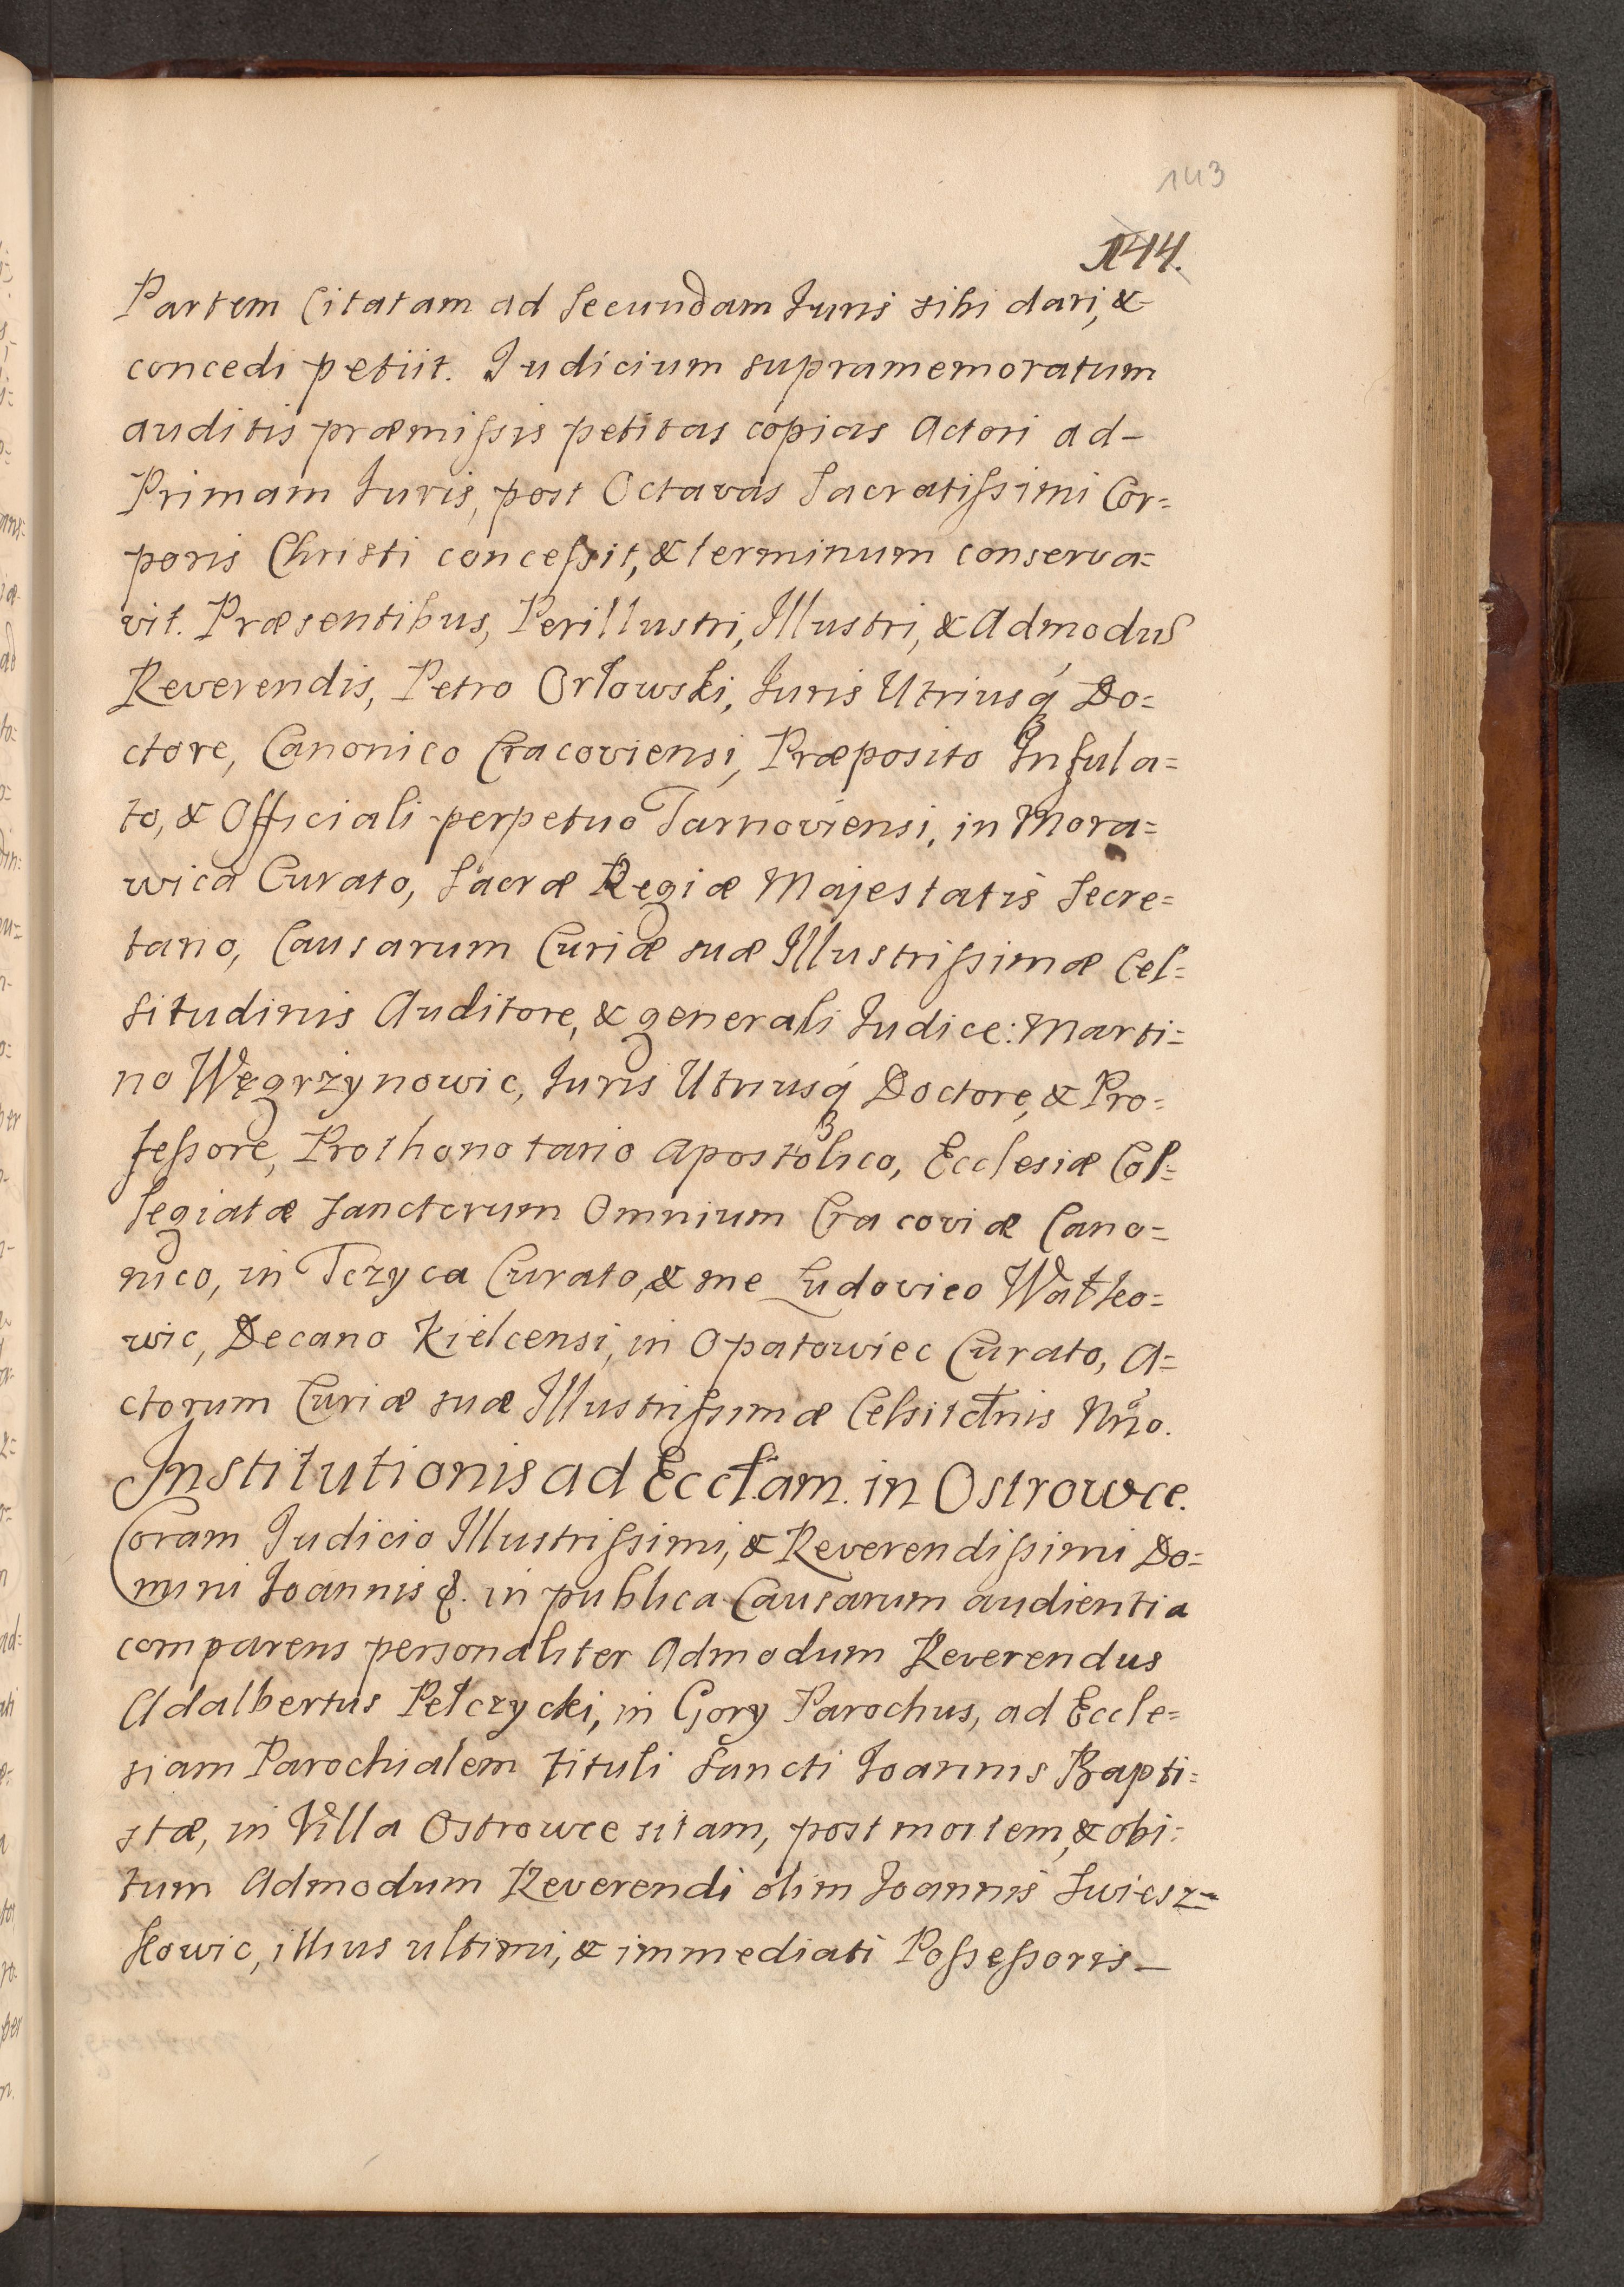 143
144.
Partem Citatam ad Secundam Iuris sibi dari, &
concedi petiit. Iudicium supramemoratum
auditis præmissis petitas copias Actori ad-
Primam Iuris, post Octavas Sacratissimi Cor=
poris Christi concessit, & terminum conserva=
vit. Præsentibus, Perillustri, Illustri, & Admodu
Reverendis, Petro Orłowski, Iuris Utriusq́ Do=
ctore, Canonico Cracoviensi, Præposito Infula=
to, & Officiali perpetuo Tarnoviensi, in Mora=
wica Curato, Sacræ Regiæ Majestatis Secre=
tario, Causarum Curiæ suæ Illustrissimæ Cel=
situdinis Auditore, & generali Iudice: Marti=
no Węgrzynowic, Iuris Utriusq́ Doctore, & Pro=
fessore, Prothonotario Apostolico, Ecclesiæ Col=
legiatæ Sanctorum Omnium Cracoviæ Cano=
nico, in Tczyca Curato, & me Ludovico Watko=
wic, Decano Kielcensi, in Opatowiec Curato, A=
ctorum Curiæ suæ Illustrissimæ Celsitdnis Nrio.
Institutionis ad Eccłam. in Ostrowce.
Coram Iudicio Illustrissimi, & Reverendissimi Do=
mini Ioannis &. in publica Causarum audientia
comparens personaliter Admodum Reverendus
Adalbertus Pełczycki, in Gory Parochus, ad Eccle=
siam Parochialem tituli Sancti Ioannis Bapti=
stæ, in Villa Ostrowce sitam, post mortem, & obi=
tum Admodum Reverendi olim Ioannis Swiesz=
kowic, illius ultimi, & immediati Possessoris-